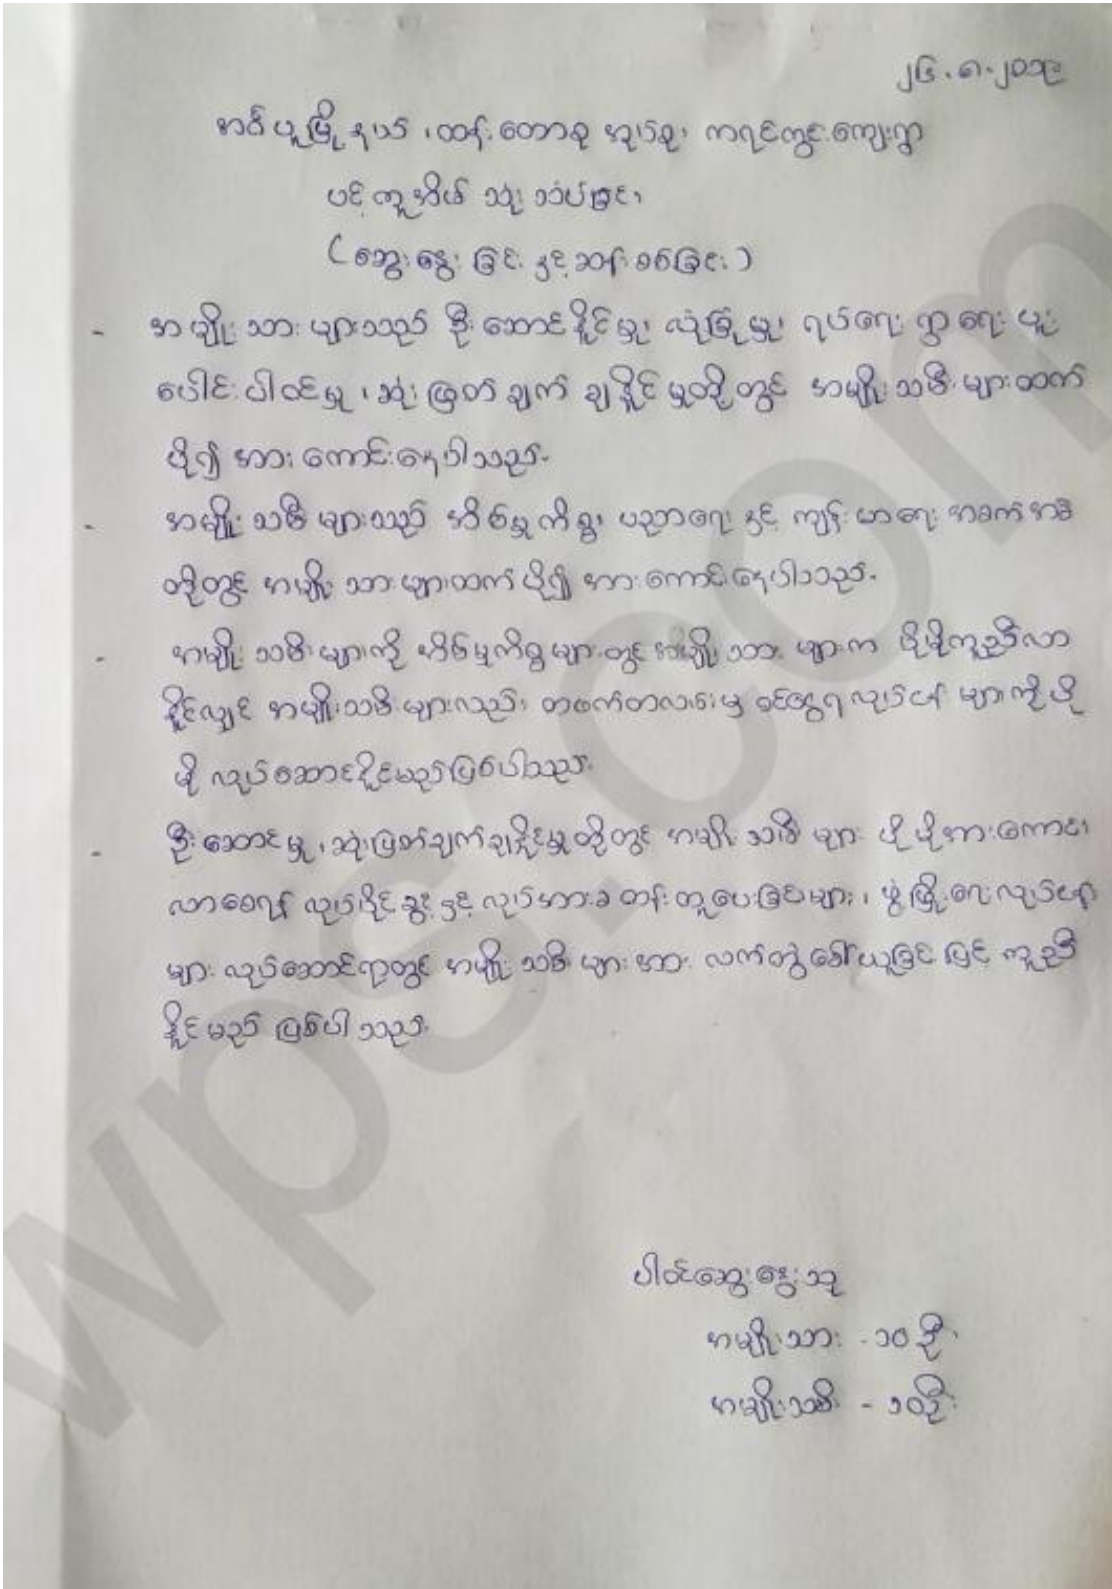 ၂၆.၈.၂၀၁၉
အင်္ဂပူမြို့နယ်၊ ထန်းတောစု အုပ်စု၊ ကရင်ကွင်းကျေးရွာ
ပင့်ကူအိမ် သုံးသပ်ခြင်း
(ဆွေးနွေးခြင်းနှင့်ဆန်းစစ်ခြင်း)
- အမျိုးသားများသည် ဦးဆောင်နိုင်မှု၊ လုံခြုံမှု၊ ရပ်ရေးရွာရေး ပူး
ပေါင်းပါဝင်မှု၊ ဆုံးဖြတ်ချက် ချနိုင်မှုတို့တွင် အမျိုးသမီးများထက်
ပို၍ အားကောင်းနေပါသည်။
- အမျိုးသမီးများသည် အိမ်မှုကိစ္စ၊ ပညာရေးနှင့် ကျန်းမာရေး အခက်အခဲ
တို့တွင် အမျိုးသားများထက်ပို၍ အားကောင်းနေပါသည်။
- အမျိုးသမီးများကို အိမ်မှုကိစ္စများတွင် အမျိုးသားများက ပိုမိုကူညီလာ
နိုင်လျှင် အမျိုးသမီးများလည်း တဖက်တလမ်းမှ ဝင်ငွေရလုပ်ငန်းများကို ပို
မို လုပ်ဆောင်နိုင်မည်ဖြစ်ပါသည်။
- ဦးဆောင်မှု၊ ဆုံးဖြတ်ချက်ချနိုင်မှုတို့တွင် အမျိုးသမီးများ ပိုမိုအားကောင်း
လာစေရန် လုပ်ပိုင်ခွင့်နှင့် လုပ်အားခ တန်းတူပေးခြင်းများ၊ ဖွံ့ဖြိုးရေးလုပ်ငန်း
များ လုပ်ဆောင်ရာတွင် အမျိုးသမီးများအား လက်တွဲခေါ်ယူခြင်းဖြင့် ကူညီ
နိုင်မည် ဖြစ်ပါသည်။
ပါဝင်ဆွေးနွေးသူ
အမျိုးသား - ၁၀ ဦး
အမျိုးသမီး - ၁၀ ဦး
wps.com